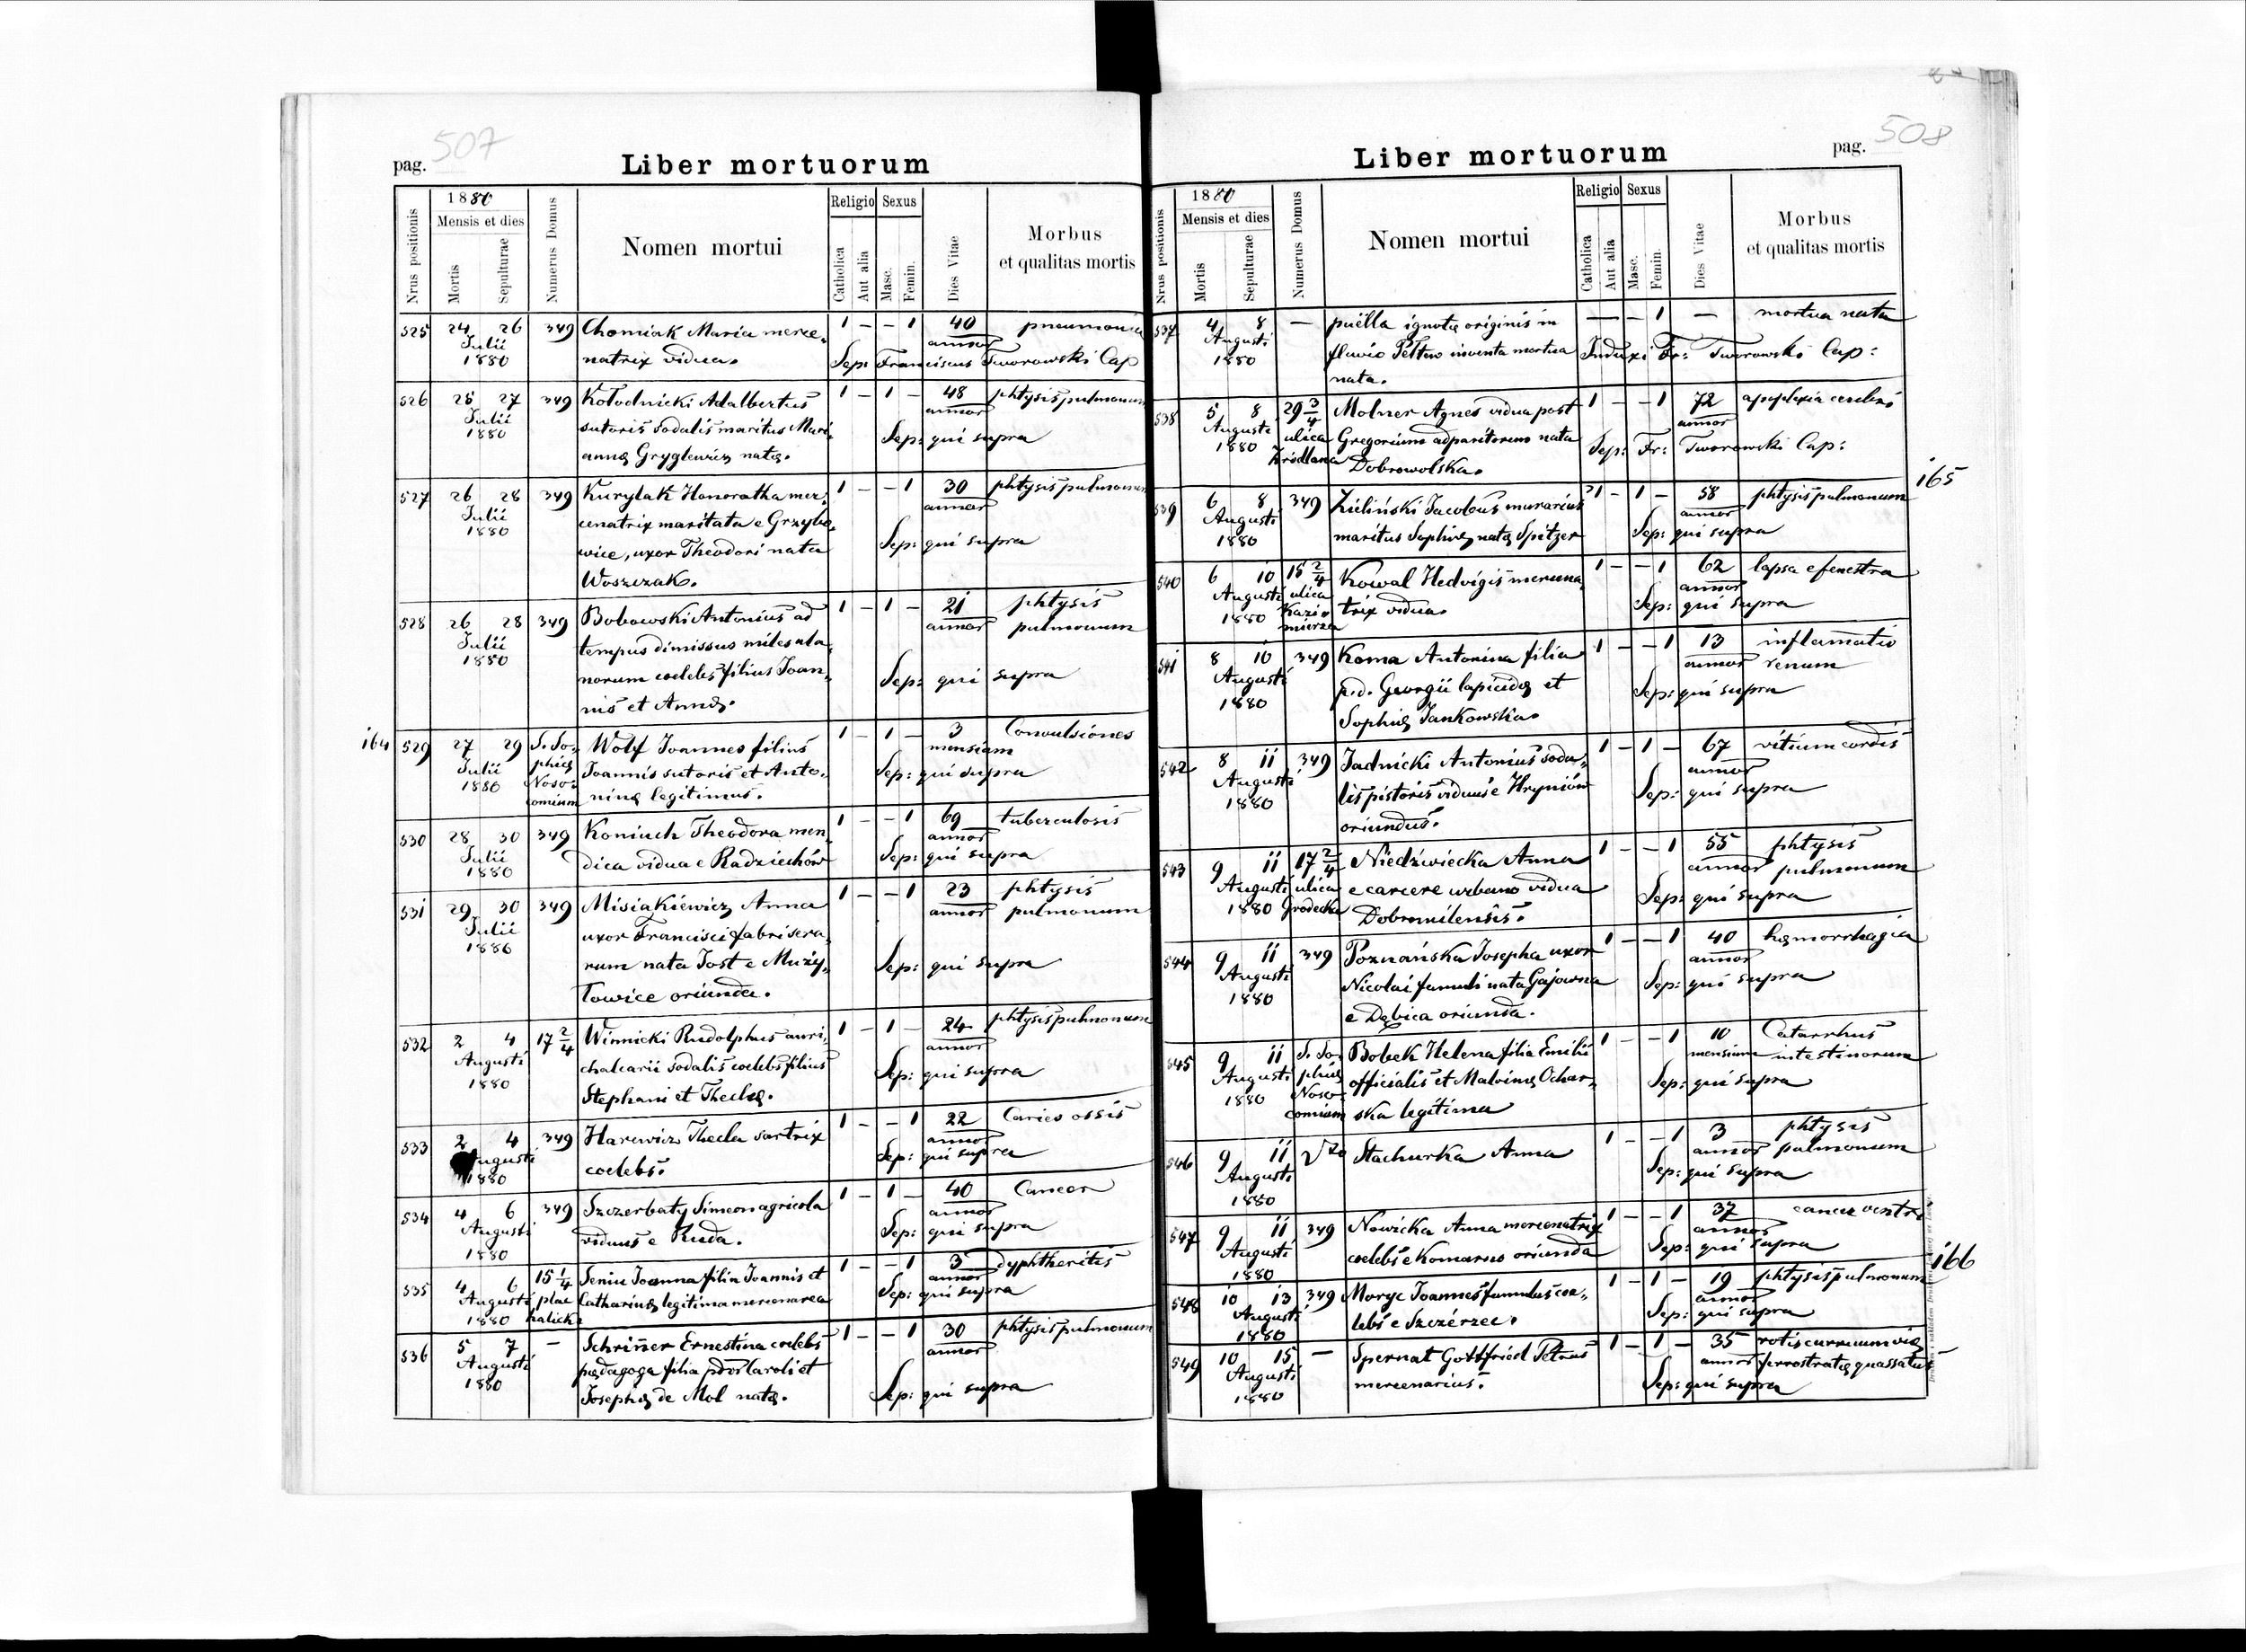 507
pag.
Liber mortuorum
Nrus positionis
1880
Mensis et dies
Mortis
Sepulturae
Numerus Domus
Nomen mortui
Religio
Catholica
Aut alia
Sexus
Masc.
Femin.
Dies Vitae
Morbus
et qualitas mortis
525 24 26 349 Chomiak Maria merce, 1 - - 1 40 pneumonia
Julii annor
1880 natrix vidua. Sep: Franciscus Tworowski Cap
526 25 27 349 Kołodnicki Adalbertus 1 - 1 - 48 phtysis pulmonum
Julii sutoris sodalis maritus Mari, annor
1880 Sep: qui supra
annę Gryglewicz natę.
527 26 28 349 Kurylak Honoratha mer, 1 - - 1 30 phtysis pulmonum
Julii cenatrix maritata e Grzybo, annor
1880 wice, uxor Theodori nata Sep: qui supra
Woszczak.
528 26 28 349 Bobowski Antonius ad 1 - 1 - 21 phtysis
Julii tempus dimissus miles ula, annor pulmonum
1880 norum coelebs filius Joan, Sep: qui supra
nis et Annę.
164 529 27 29 S. So, Wolf Joannes filius 1 - 1 - 3 Convulsiones
Julii phię Joannis sutoris et Anto, mensium
1880 Noso, ninę legitimus. Sep: qui supra
comium
530 28 30 349 Koniuch Theodora men 1 - - 1 69 tuberculosis
Julii dica vidua e Radziechów annor
1880 Sep: qui supra
531 29 30 349 Misiakiewicz Anna 1 - - 1 23 phtysis
Julii uxor Francisci fabri sera, annor pulmonum
1880 rum nata Jost e Muży, Sep: qui supra
łowice oriunda.
532 2 4 17 2/4 Winnicki Rudolphus auri, 1 - 1 - 24 phtysis pulmonum
Augusti chalcarii sodalis coelebs filius annor
1880 Stephani et Theclę. Sep: qui supra
533 2 4 349 Harewicz Thecla sartrix 1 - - 1 22 Caries ossis
Augusti coelebs. annor
1880 Sep: qui supra
534 4 6 349 Szczerbaty Simeon agricola 1 - 1 - 40 Cancer
Augusti viduus e Ruda. annor
1880 Sep: qui supra
535 4 6 15 1/4 Seniu Joanna filia Joannis et 1 - - 1 3 dyphtheritis
Augusti plac Catharinę legitima mercenarea annor
1880 halicki Sep: qui supra
536 5 7 - Schriñer Ernestina coelebs 1 - - 1 30 phtysis pulmonum
Augusti pędagoga filia Caroli et annor
1880 Josephę de Mol natę. Sep: qui supra
508
Liber mortuorum
pag.
Nrus positionis
1880
Mensis et dies
Mortis
Sepulturae
Numerus Domus
Nomen mortui
Religio
Catholica
Aut alia
Sexus
Masc.
Femin.
Dies Vitae
Morbus
et qualitas mortis
537 4 8 - puella ignotę originis in - - - 1 - mortua nata
Augusti fluvio Pełtew inventa mortua Induxi Fr: Tworowski Cap:
1880 nata.
538 5 8 29 3/4 Molner Agnes vidua post 1 - - 1 72 apoplexia cerebri
Augusti ulica Gregorium adparitorem nata annor
1880 Źródlana Dobrowolska. Sep: Fr: Tworowski Cap:
165
539 6 8 349 Zieliński Jacobus murarius 1 - 1 - 58 phtysis pulmonum
Augusti maritus Sophię natę Spitzer annor
1880 Sep: qui supra
540 6 10 15 2/4 Kowal Hedvigis mercena, 1 - - 1 62 lapsa e fenestra
Augusti ulica trix vidua. annor
1880 Kazi, mierza Sep: qui supra
541 8 10 349 Koma Antonina filia 1 - - 1 13 inflamatio
Augusti p.d. Georgii lapicidę et annor renum
1880 Sophię Jankowska. Sep: qui supra
542 8 11 349 Jadnicki Antonius soda, 1 - 1 - 67 vitium cordis
Augusti lis pistoris viduus e Hryniów annor
1880 oriundus. Sep: qui supra
543 9 11 17 2/4 Niedźwiecka Anna 1 - - 1 55 phtysis
Augusti ulica e carcere urbano vidua annor pulmonum
1880 Grodecka Dobromilensis. Sep: qui supra
544 9 11 349 Poznańska Josepha uxor 1 - - 1 40 hęmorrhagia
Augusti Nicolai famuli nata Gajowna annor
1880 e Dębica oriunda. Sep: qui supra
545 9 11 S. So, Bobek Helena filia Emilii 1 - - 1 10 Catarrhus
Augusti phię officialis et Malvinę Ochar, mensium intestinorum
1880 Noso, comium ska legitima Sep: qui supra
546 9 11 Stachurka Anna 1 - - 1 3 phtysis
Augusti annor pulmonum
1880 Sep: qui supra
547 9 11 349 Nowicka Anna mercenatrix 1 - - 1 37 cancer ventri
Augusti coelebs e Komarno oriunda annor
1880 Sep: qui supra
166
548 10 13 349 Moryc Joannes famulus coe, 1 - 1 - 19 phtysis pulmonum
Augusti lebs e Szczérzec. annor
1880 Sep: qui supra
549 10 15 - Spernat Gottfried Petrus 1 - 1 - 35 rotis curruum vię
Augusti mercenarius. annor ferrostratę quassatus
1880 Sep: qui supra